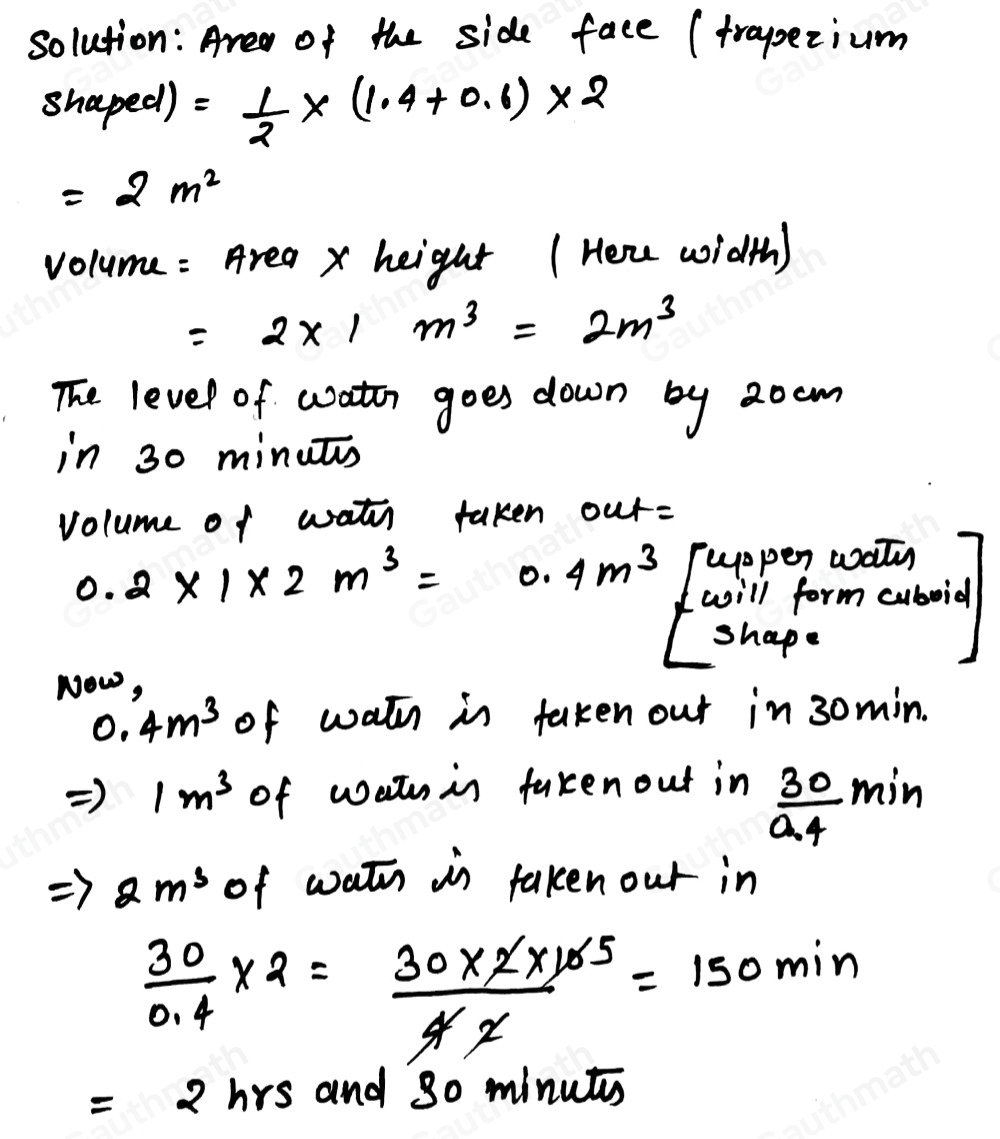 Solution: Area of the side face (trapezium
shaped) = 1/2 × (1.4 + 0.6) × 2
= 2 m²
Volume = Area × height (Here width)
= 2 × 1 m³ = 2m³
The level of water goes down by 20 cm
in 30 minutes
Volume of water taken out =
0.2 × 1 × 2 m³ = 0.4 m³ [upper water
will form cuboid
shape]
Now,
0.4m³ of water is taken out in 30 min.
=> 1 m³ of water is taken out in 30/0.4 min
=> 2 m³ of water is taken out in
30/0.4 × 2 = 30 × 2 × 10 5 / 4 2 = 150 min
= 2 hrs and 30 minutes
Gauthmath